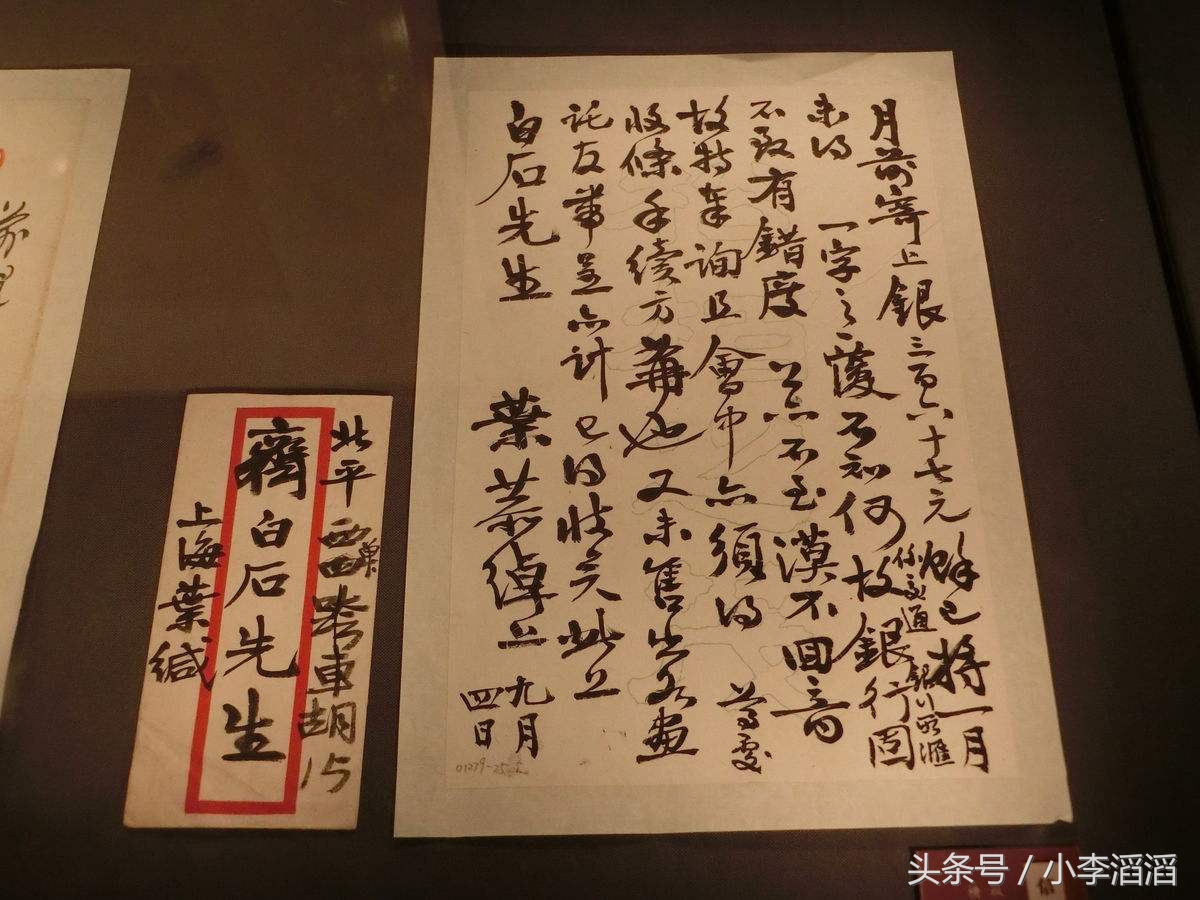 月前寄上銀三百六十七元餘已將一月
係交通銀行所滙
未得一字之覆不知何故銀行固
不致有錯度 公亦不至漠不回音
故特奉詢且會中亦須得 尊處
收條手續方也又未售出各畫
託友帶呈亦計已得收矣此上
白石先生 葉恭綽上 九月
四日
北平西單跨車胡15
齊白石先生
上海葉緘
头条号 / 小李滔滔